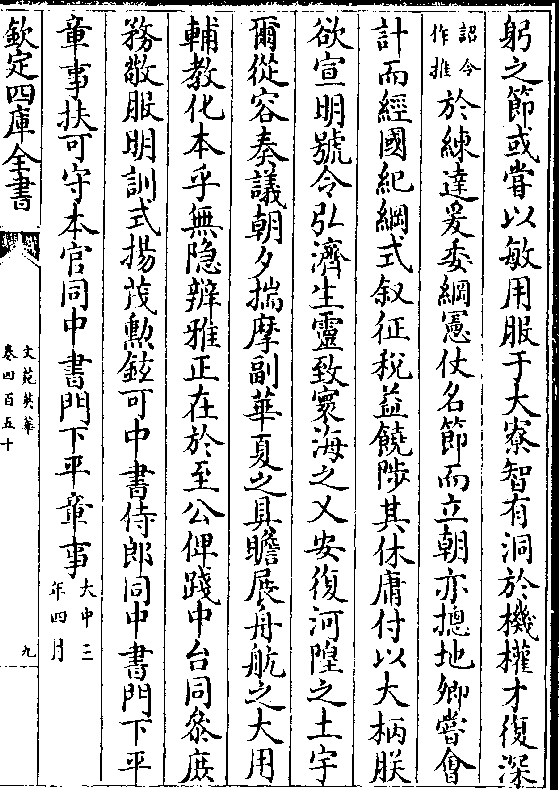 躬之節或嘗以敏用服于大寮智有洞於機權才復深
詔令作推於練達爰委綱憲仗名節而立朝亦摠地卿嘗會
計而經國紀綱式敘征稅益饒陟其休庸付以大柄朕
欲宣明號令弘濟生靈致寰海之乂安復河隍之土宇
爾從容奏議朝夕揣摩副華夏之具瞻展舟航之大用
輔教化本乎無隐辨雅正在於至公俾踐中台同叅庶
務敬服明訓式揚茂勲鉉可中書侍郎同中書門下平
章事扶可守本官同中書門下平章事大中三年四月
欽定四庫全書
文苑英華
卷四百五十
九